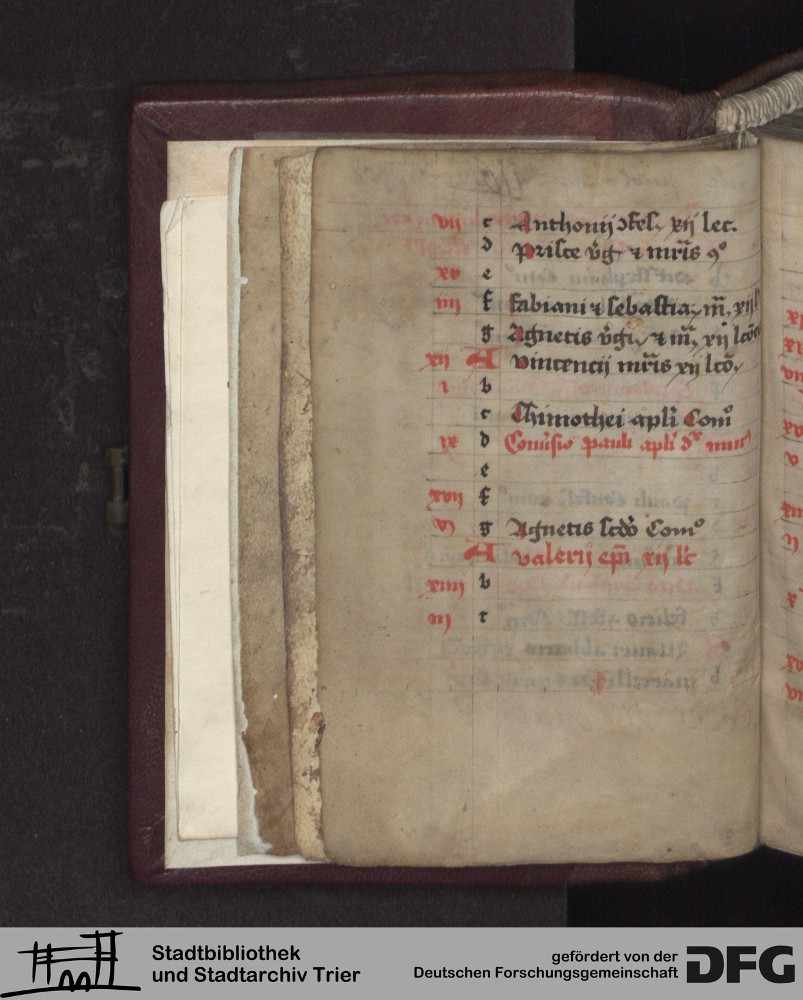 vij c Anthonij ɔfes. xij lec.
d Prisce v̉g & mr̄is 9°
xv e
iiij f Fabiani & sebastia. m̄. xij l
g Agnetis v̉gi. & m̄. xij lcō
xij A vincencij mr̄is xij lcō.
i b
c Thimothei apl'i Com̄
ix d Conu̓sio pauli apl'i
e
xvij f
vi g Agnetis scd̓o Com̄
A valerij ep̄i xij lc
xiiij b
iij c
Stadtbibliothek
und Stadtarchiv Trier
gefördert von der
Deutschen Forschungsgemeinschaft
DFG